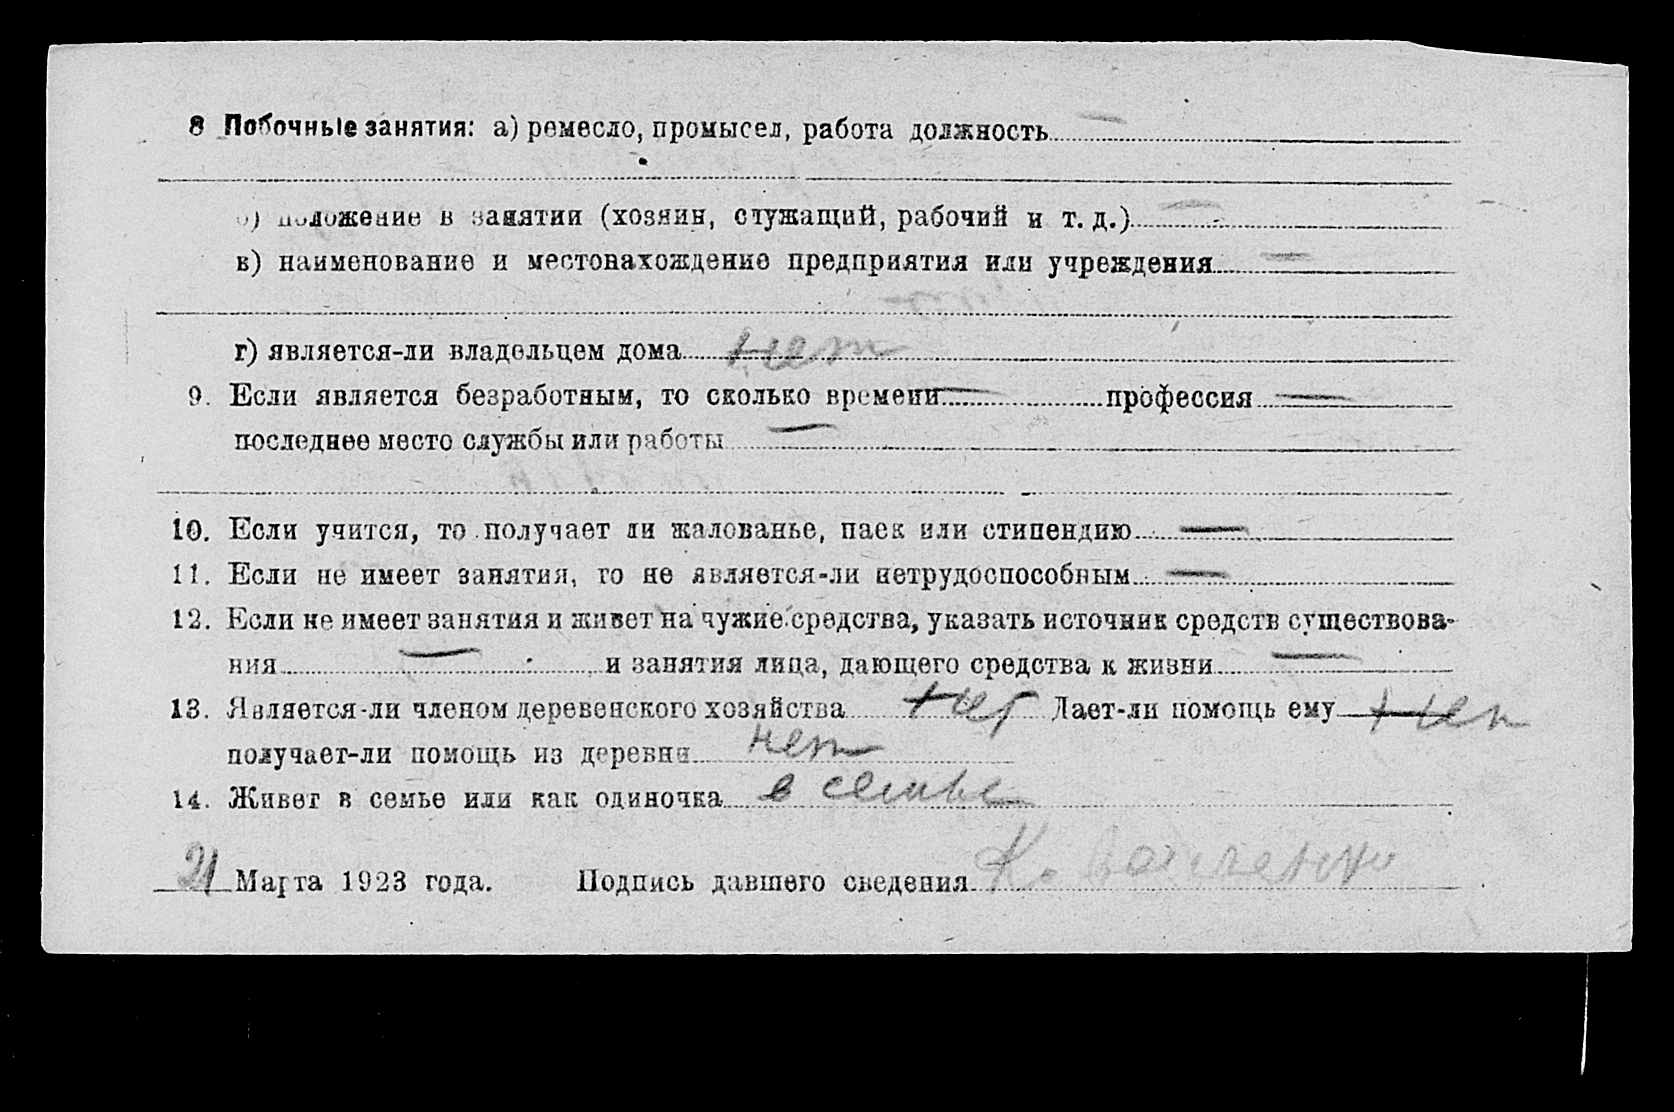 8 Побочные занятия: а) ремесло, промысел, работа должность —
б) положение в занятии (хозяин, служащий, рабочий и т. д.) —
в) наименование и местонахождение предприятия или учреждения —
г) является-ли владельцем дома нет
9. Если является безработным, то сколько времени — профессия —
последнее место службы или работы —
10. Если учится, то получает ли жалованье, паек или стипендию —
11. Если не имеет занятия, то не является-ли нетрудоспособным —
12. Если не имеет занятия и живет на чужие средства, указать источник средств существова-
ния — и занятия лица, дающего средства к жизни —
13. Является-ли членом деревенского хозяйства нет Дает-ли помощь ему нет
получает-ли помощь из деревни нет
14. Живет в семье или как одиночка в семье
21 Марта 1923 года. Подпись давшего сведения К.